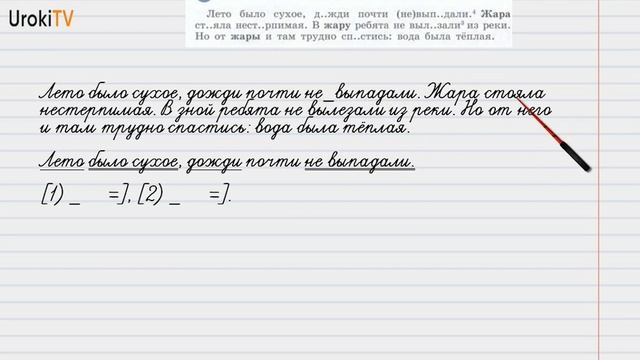 UrokiTV
Лето было сухое, д..жди почти (не)вып..дали.⁴ Жара
ст..яла нест..рпимая. В жару ребята не выл..зали³ из реки.
Но от жары и там трудно сп..стись: вода была тёплая.
Лето было сухое, дожди почти не_выпадали. Жара стояла
нестерпимая. В зной ребята не вылезали из реки. Но от него
и там трудно спастись: вода была тёплая.
Лето было сухое, дожди почти не выпадали.
[1) _ =], [2) _ =].